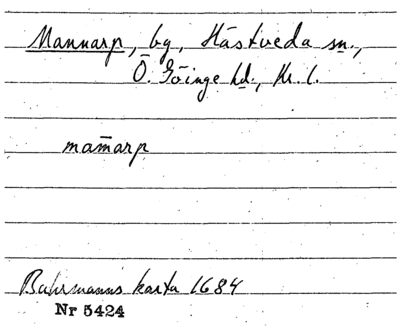 Mannarp, bg, Hästveda sn.,
Ö. Göinge hd., Kr. l.
mam̄arp
Buhrmanns karta 1684
Nr 5424